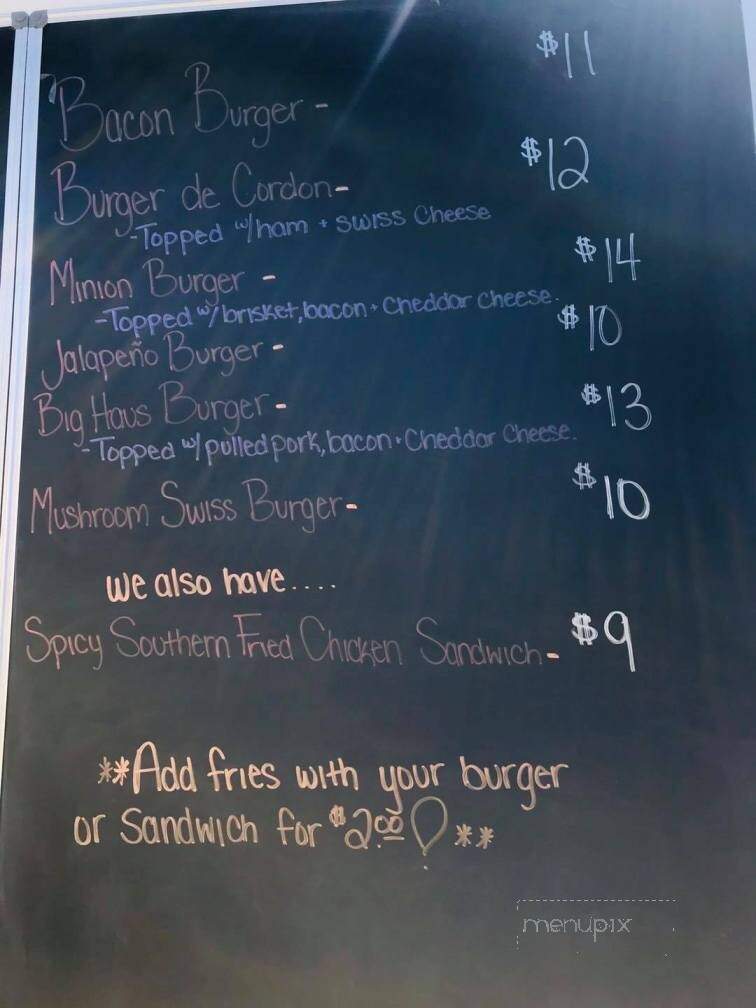 Bacon Burger - $11
Burger de Cordon- $12
-Topped w/ham + swiss Cheese
Minion Burger - $14
-Topped w/brisket, bacon + Cheddar cheese.
Jalapeño Burger - $10
Big Haus Burger - $13
-Topped w/pulled pork, bacon + Cheddar Cheese.
Mushroom Swiss Burger- $10
we also have....
Spicy Southern Fried Chicken Sandwich - $9
**Add fries with your burger
or Sandwich for $2.00!**
menupix